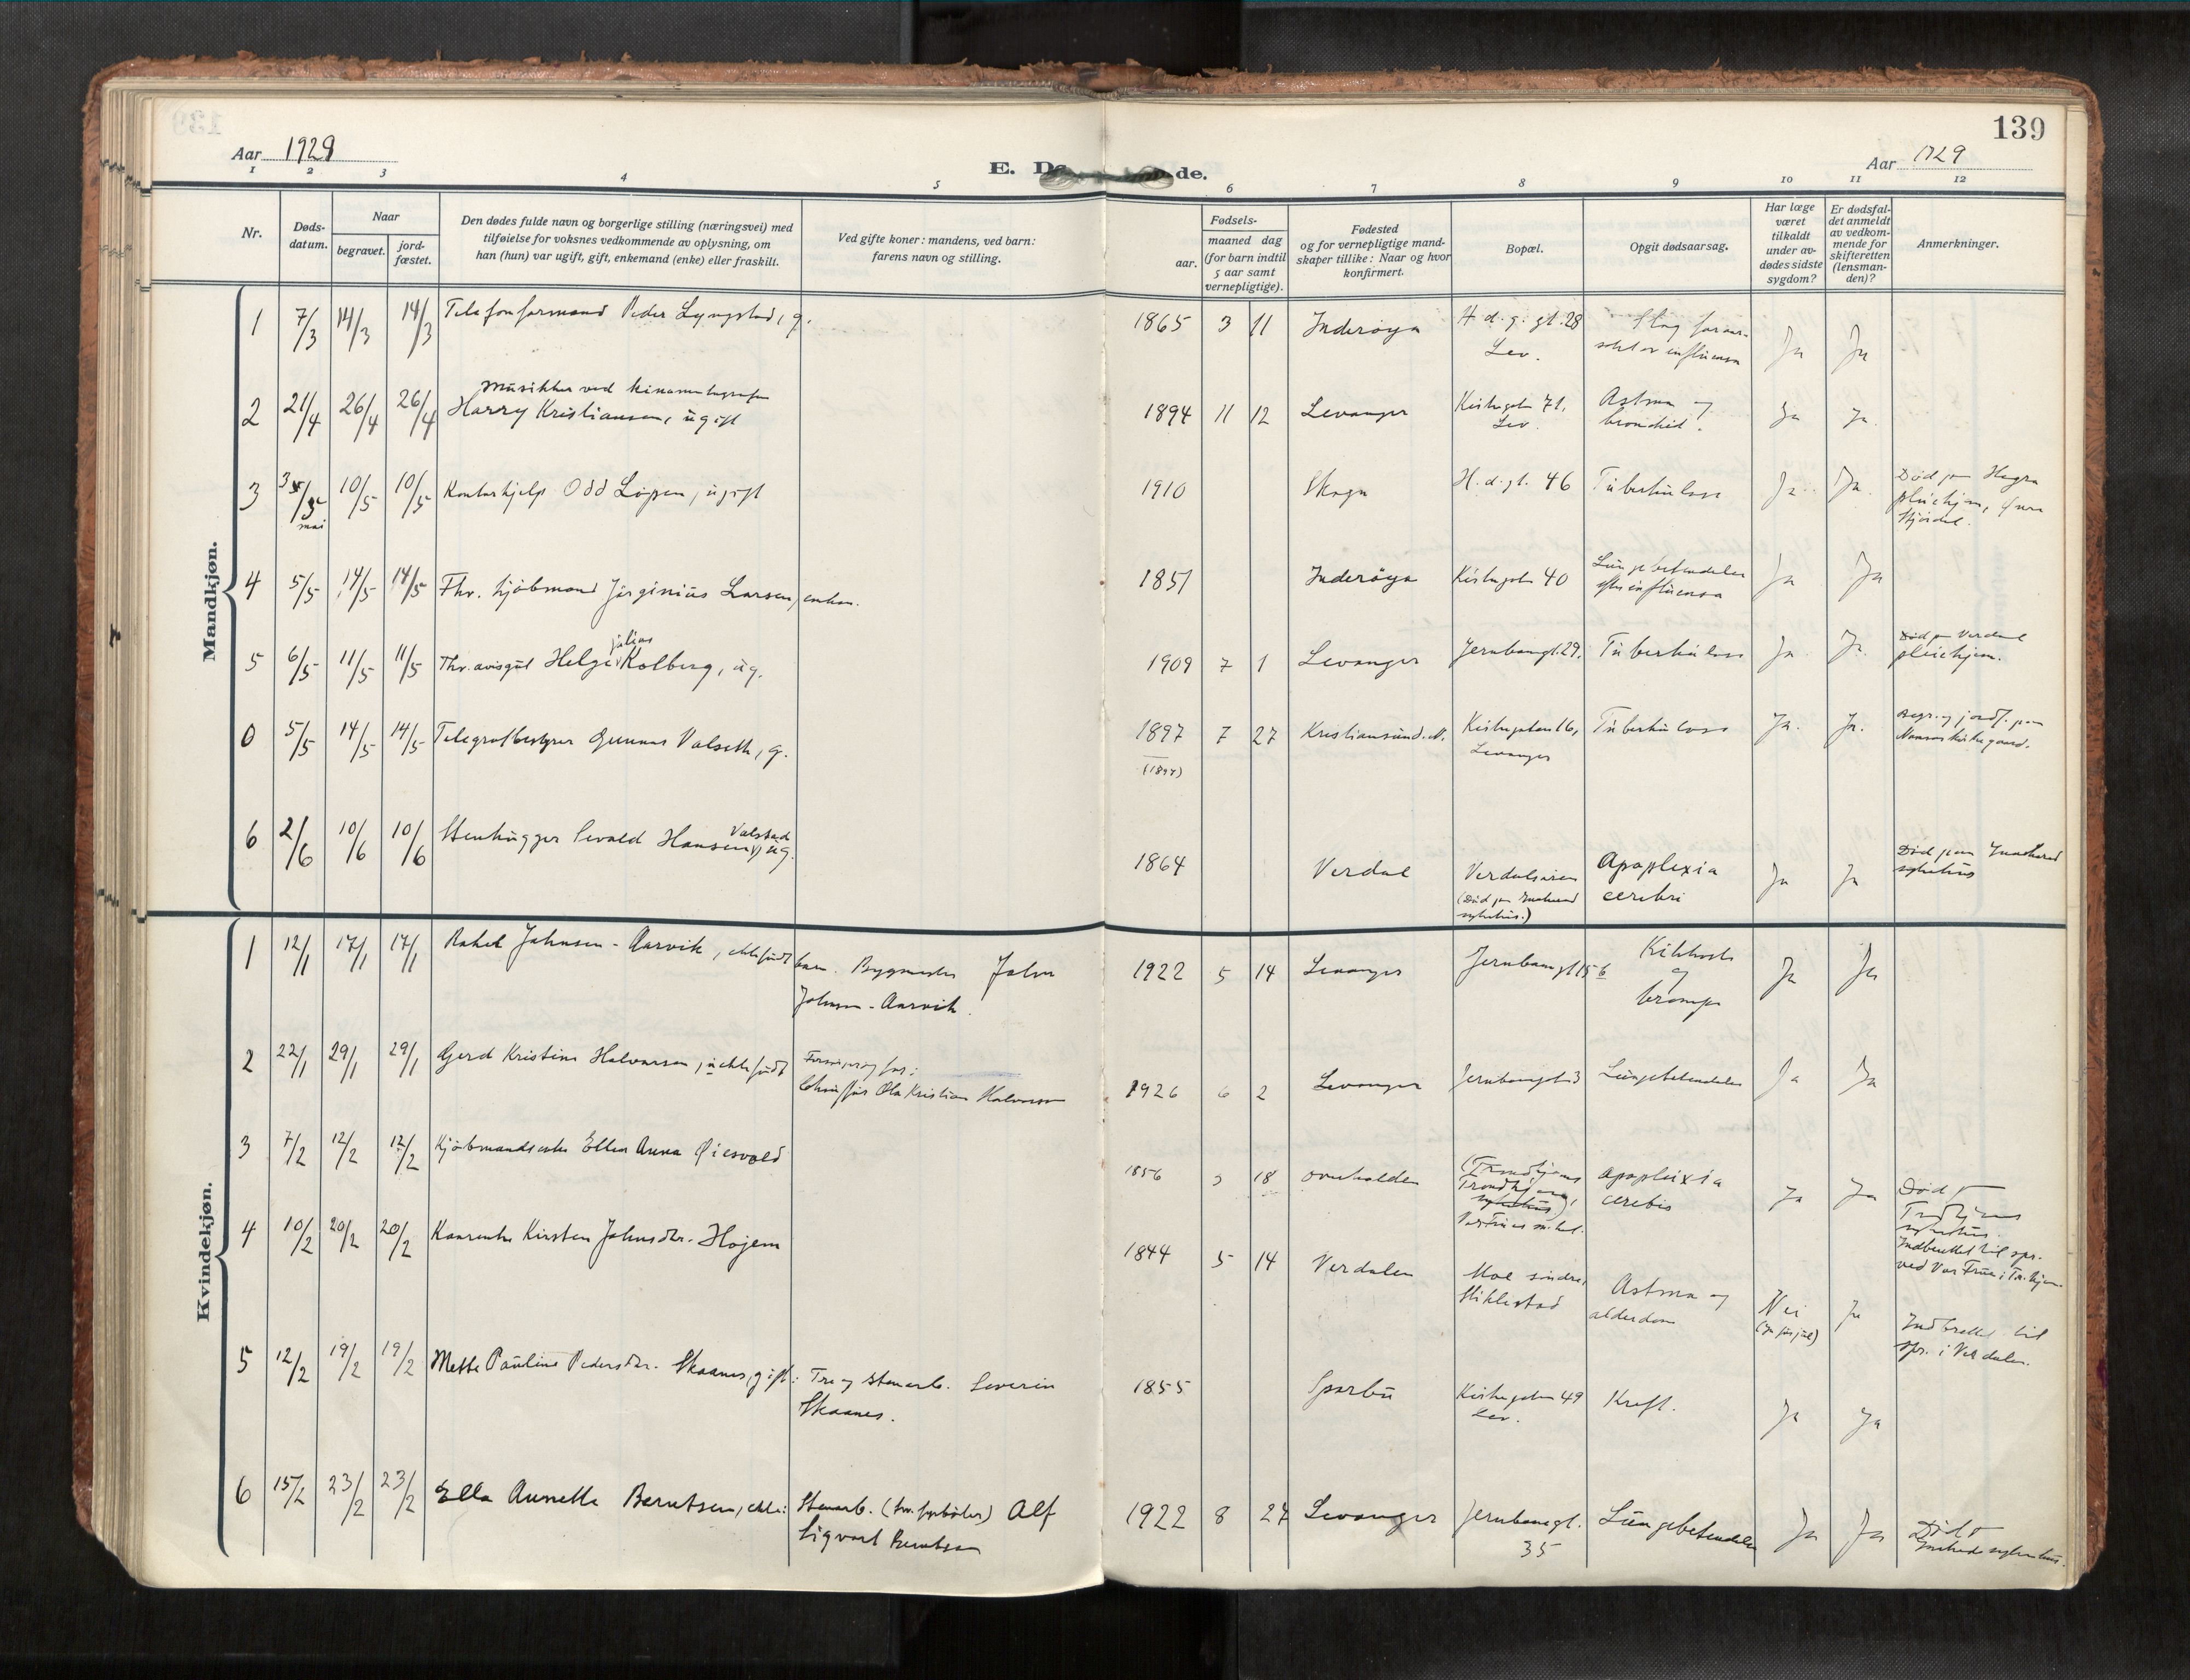 139
Aar 1929
E. Dø
de.
Aar 1929
1 2 3 4 5 6 7 8 9 10 11 12
Nr.
Døds-
datum.
Naar
begravet.
jord-
fæstet.
Den dødes fulde navn og borgerlige stilling (næringsvei) med
tilføielse for voksnes vedkommende av oplysning, om
han (hun) var ugift, gift, enkemand (enke) eller fraskilt.
Ved gifte koner: mandens, ved barn:
farens navn og stilling.
Fødsels-
aar.
maaned dag
(for barn indtil
5 aar samt
vernepligtige).
Fødested
og for vernepligtige mand-
skaper tillike: Naar og hvor
konfirmert.
Bopæl.
Opgit dødsaarsag.
Har læge
været
tilkaldt
under av-
dødes sidste
sygdom?
Er dødsfal-
det anmeldt
av vedkom-
mende for
skifteretten
(lensman-
den)?
Anmerkninger.
Mandkjøn.
1 7/3 14/3 14/3 Telefonformand Peder Lyngstad, g. 1865 3 11 Inderøya H. d. g. gt. 28 Slag foraar-
Lev. Ja Ja
musikker ved kinematografen
2 21/4 26/4 26/4 Harry Kristiansen, ugift 1894 11 12 Levanger Kirkegaten 71, Astma og
Lev. bronchit. Ja Ja.
3 /5 10/5 10/5 Kontorhjelp Odd Løpen, ugift 1910 Skogn H. d. gt. 46 Tuberkulose Ja. Ja. Død paa Hegra
mai pleiehjem,
Stjørdal.
4 5/5 14/5 14/5 Fhv. kjøbmand Jørginius Larsen, enkem. 1851 Inderøya Kirkegaten 40 Lungebetendelse
efter influensa Ja Ja
julius
5 6/5 11/5 11/5 Fhv. avisgut Helge Kolberg, ug. 1909 7 1 Levanger Jernbanegt. 29. Tuberkulose Ja. Ja. Død paa Verdal
pleiehjem.
0 5/5 14/5 14/5 Telegrafbestyrer Gunnar Valseth, g. 1897 7 27 Kristiansund. N. Kirkegaten 16, Tuberkulose Ja. Ja. Begr. og jordf. paa
(1897) Levanger Namsos kirkegaard.
Valstad
6 2/6 10/6 10/6 Stenhugger Sevald Hansen, ug. 1864 Verdal Verdalsøren Apoplexia Ja Ja Død paa Innherad
(Død paa Innherred cerebri sykehus
sykehus.)
Kvindekjøn.
1 12/1 17/1 17/1 Rakel Johnsen-Aarvik, ektefødt barn. Bygmester John 1922 5 14 Levanger Jernbanegt 15 b Kikhoste
Johnsen-Aarvik. og Ja Ja
krampe
2 22/1 29/1 29/1 Gerd Kristine Halvorsen, uektefødt
Chauffør Ola Kristian Halvorsen 1926 6 2 Levanger Jernbanegt 3 Lungebetendelse Ja Ja
3 7/2 12/2 12/2 Kjøbmandsenke Ellen Anna Øiesvold 1856 18 overhalden (Trondhjems apoplexia Ja Ja Død
Trondhjem, cerebis Trondhjems
sykehus) sykehus.
Vor Frues m.het. Indberettet til spr.
ved Vor Frue i Tr.hjem.
4 10/2 20/2 20/2 Kaarenke Kirsten Johnsdtr. Højem 1844 5 14 Verdalen Moe søndre, Astma og Nei Ja Indberettet til
Stiklestad alderdom spr. i Verdalen.
5 12/2 19/2 19/2 Mette Pauline Pedersdtr. Skaanes, gift: Tre og stenarb. Severin 1855 Sparbu Kirkegaten 49 Kreft. Ja Ja
Skaanes. Lev.
6 15/2 23/2 23/2 Ella Annette Berntsen, ekte: Stenarb. (fhv. fyrbøter) Alf 1922 8 27 Levanger Jernbanegt. Lungebetendelse Ja Ja Død
Sigvart Berntsen 35 Innherred sykehus.